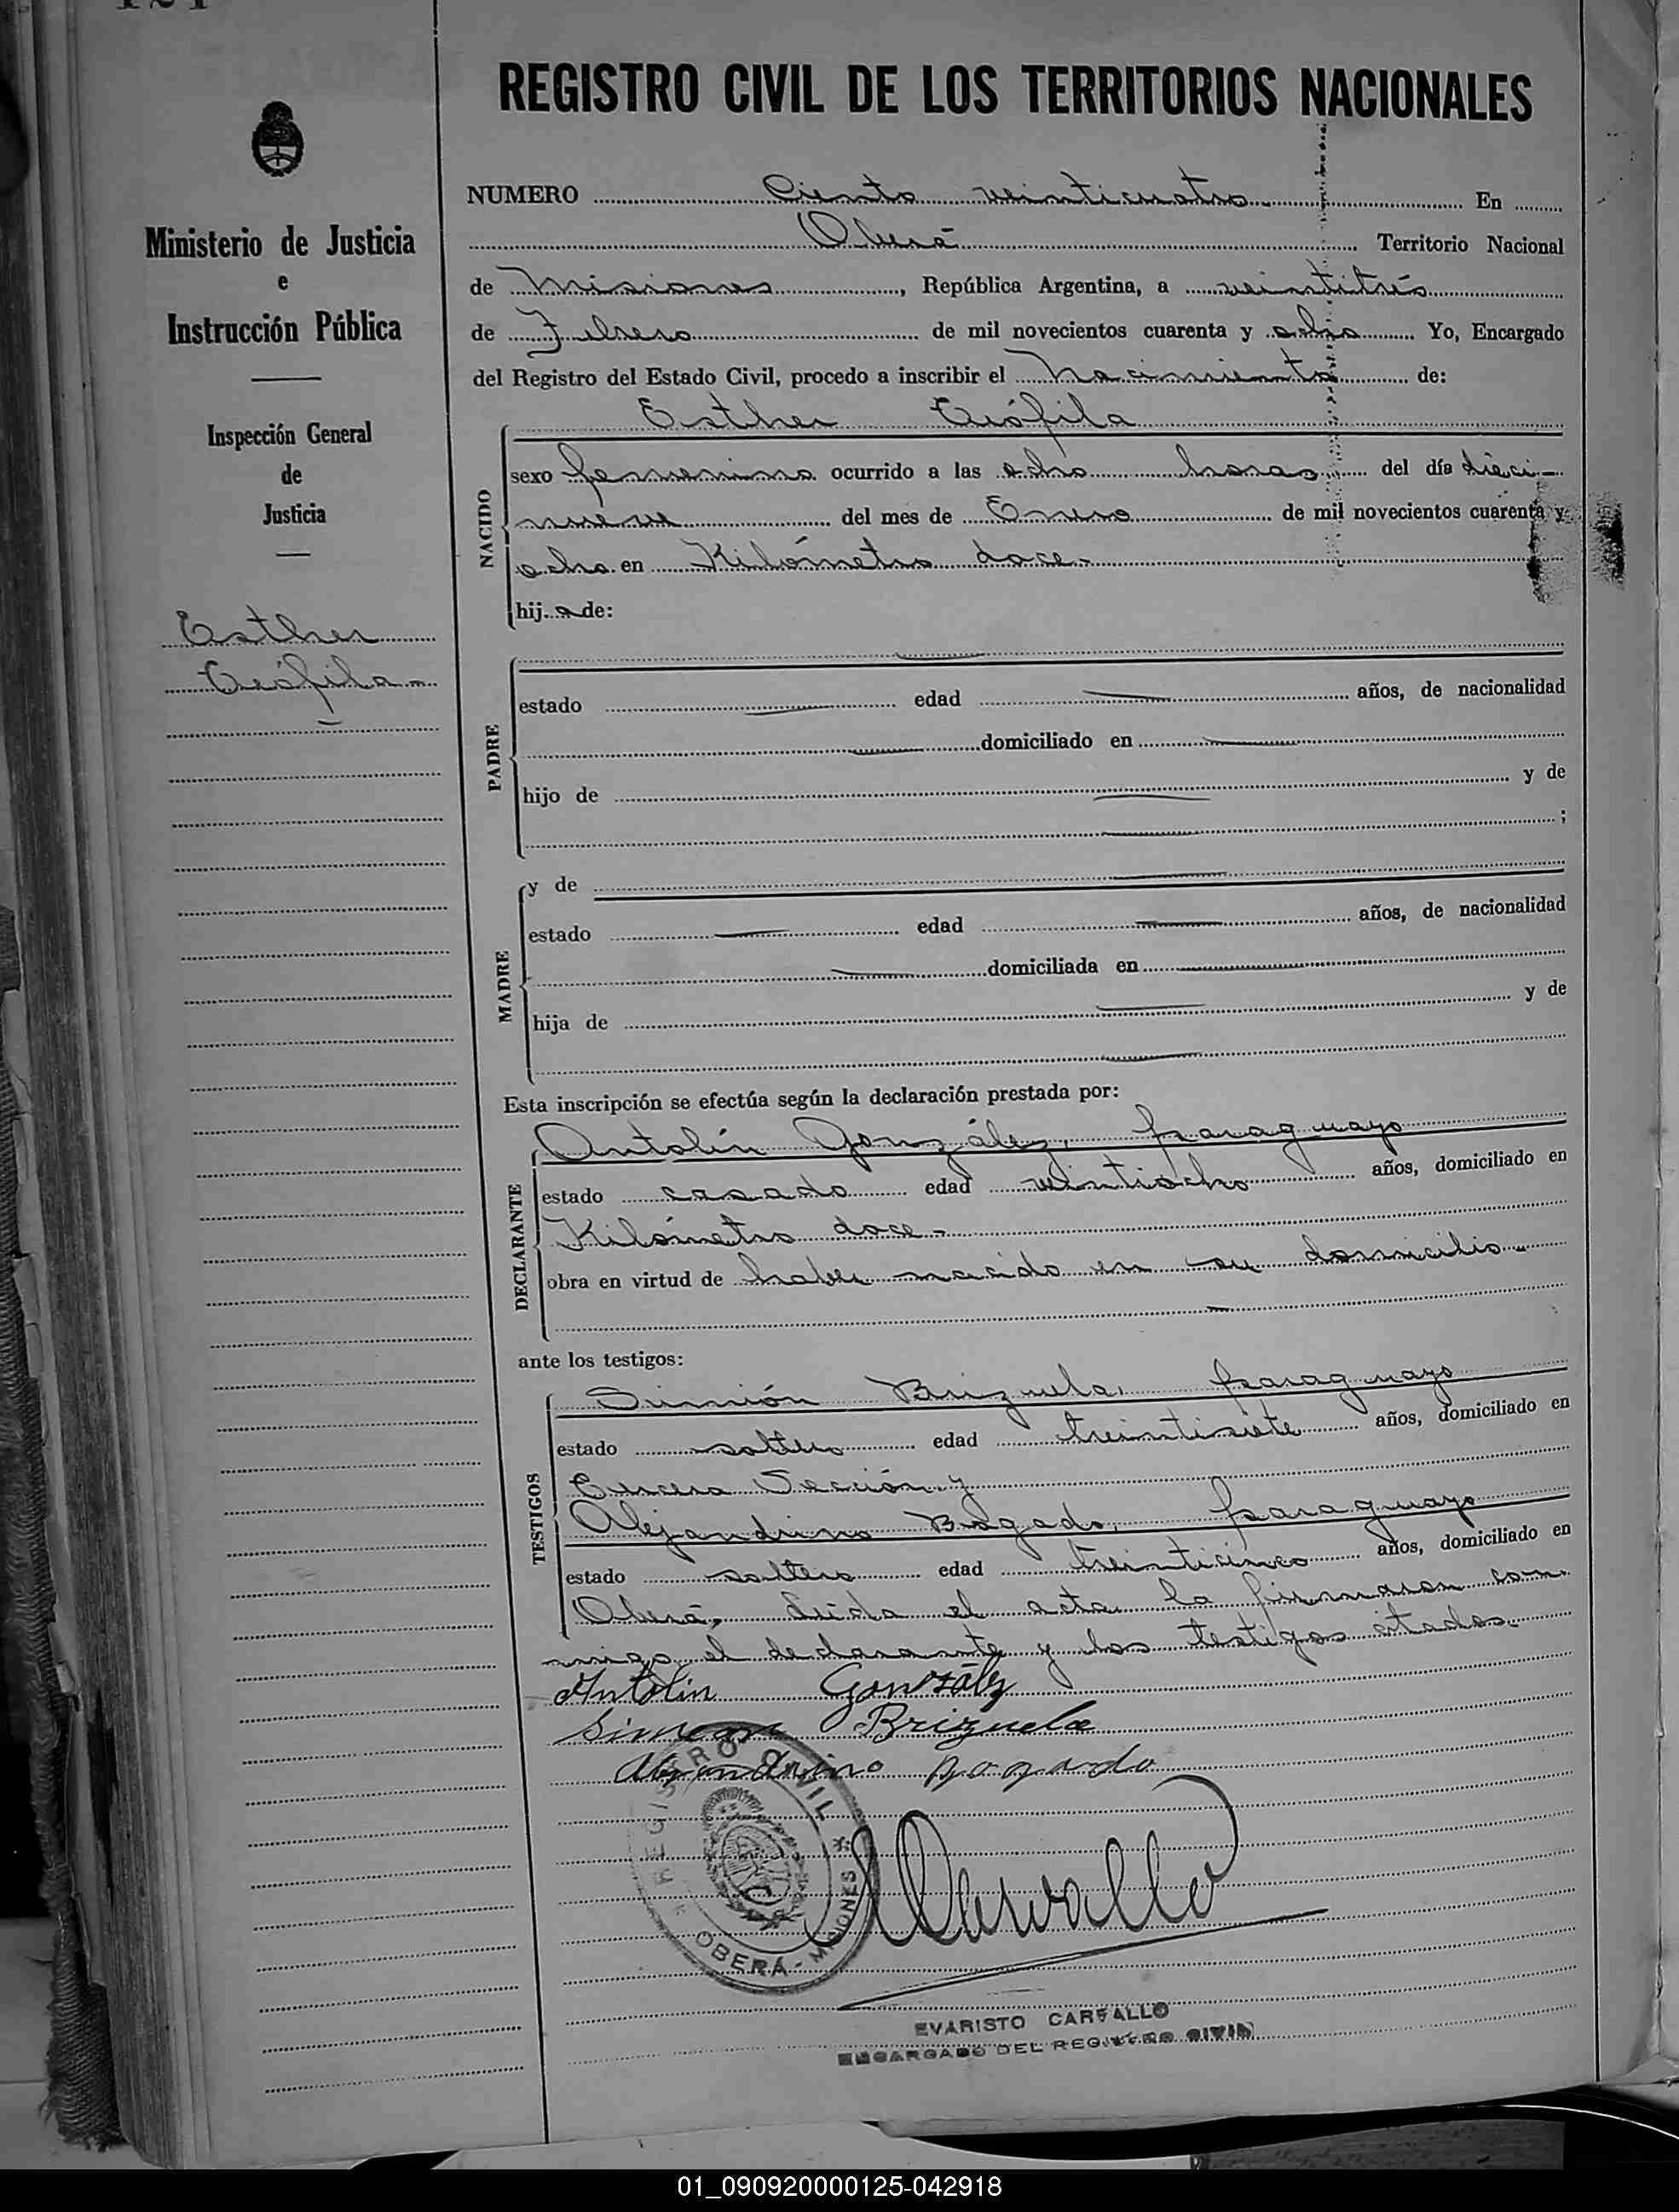 REGISTRO CIVIL DE LOS TERRITORIOS NACIONALES
Ministerio de Justicia
e
Instrucción Pública
Inspección General
de
Justicia
Esther
Teófila
NUMERO Ciento veinticuatro En
Oberá Territorio Nacional
de Misiones, República Argentina, a veintitrés
de Febrero de mil novecientos cuarenta y ocho Yo, Encargado
del Registro del Estado Civil, procedo a inscribir el nacimiento de:
Esther Teófila
NACIDO
sexo femenino ocurrido a las ocho horas del día dieci-
nueve del mes de Enero de mil novecientos cuarenta y
ocho en Kilómetro doce-
hija de:
PADRE
estado edad años, de nacionalidad
domiciliado en
hijo de y de
;
MADRE
y de
estado edad años, de nacionalidad
domiciliada en
hija de y de
Esta inscripción se efectúa según la declaración prestada por:
DECLARANTE
Antolín González, paraguayo
estado casado edad veintiocho años, domiciliado en
Kilómetro doce-
obra en virtud de haber nacido en su domicilio-
ante los testigos:
TESTIGOS
Simión Brizuela, paraguayo
estado soltero edad treintisiete años, domiciliado en
Tercera Sección y
Alejandrino Bogado, paraguayo
estado soltero edad treinticinco años, domiciliado en
Oberá, Leída el acta la firmaron con-
migo el declarante y los testigos citados.
Antolin González
Simeon Brizuela
Alejandrino Bogado
REGISTRO CIVIL
OBERÁ - MISIONES
Carvallo
EVARISTO CARVALLO
ENCARGADO DEL REGISTRO CIVIL
01_090920000125-042918